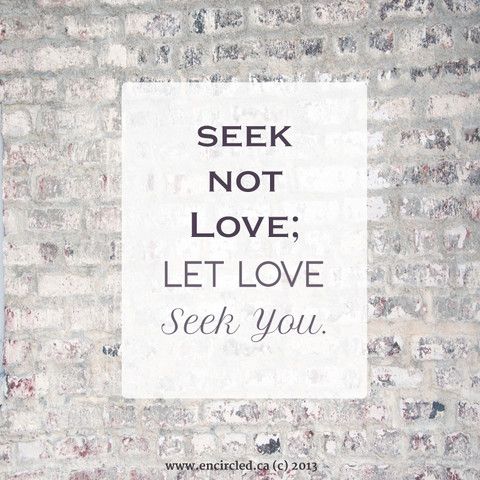 SEEK
NOT
LOVE;
LET LOVE
Seek You.
www.encircled.ca (c) 2013